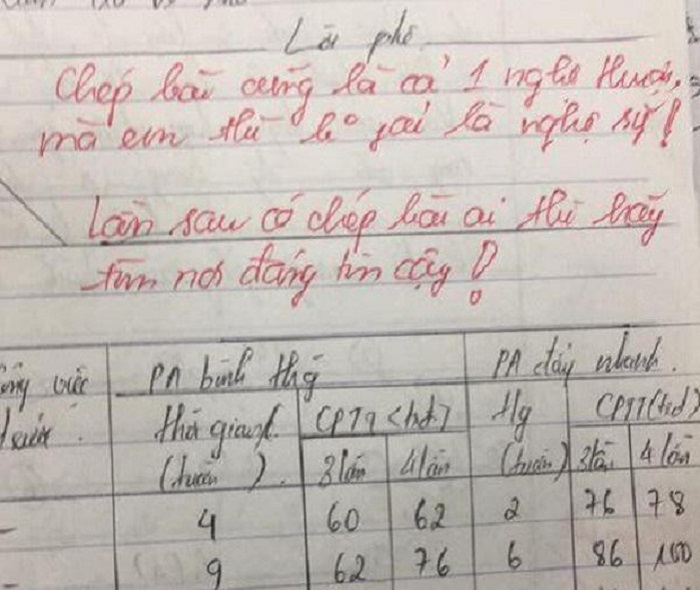 Lời phê
Chép bài cũng là cả 1 nghệ thuật,
mà em thì lo phải là nghệ sỹ!
Lần sau có chép bài ai thì hãy
tìm nơi đáng tin cậy!
PA bình thg
PA đẩy nhanh.
việc
thời gian
CPTT (trđ)
tg
CPTT (trđ)
(tuần)
3 lần
4 lần
(tuần)
3 lần
4 lần
4
60
62
2
76
78
9
62
76
6
86
100